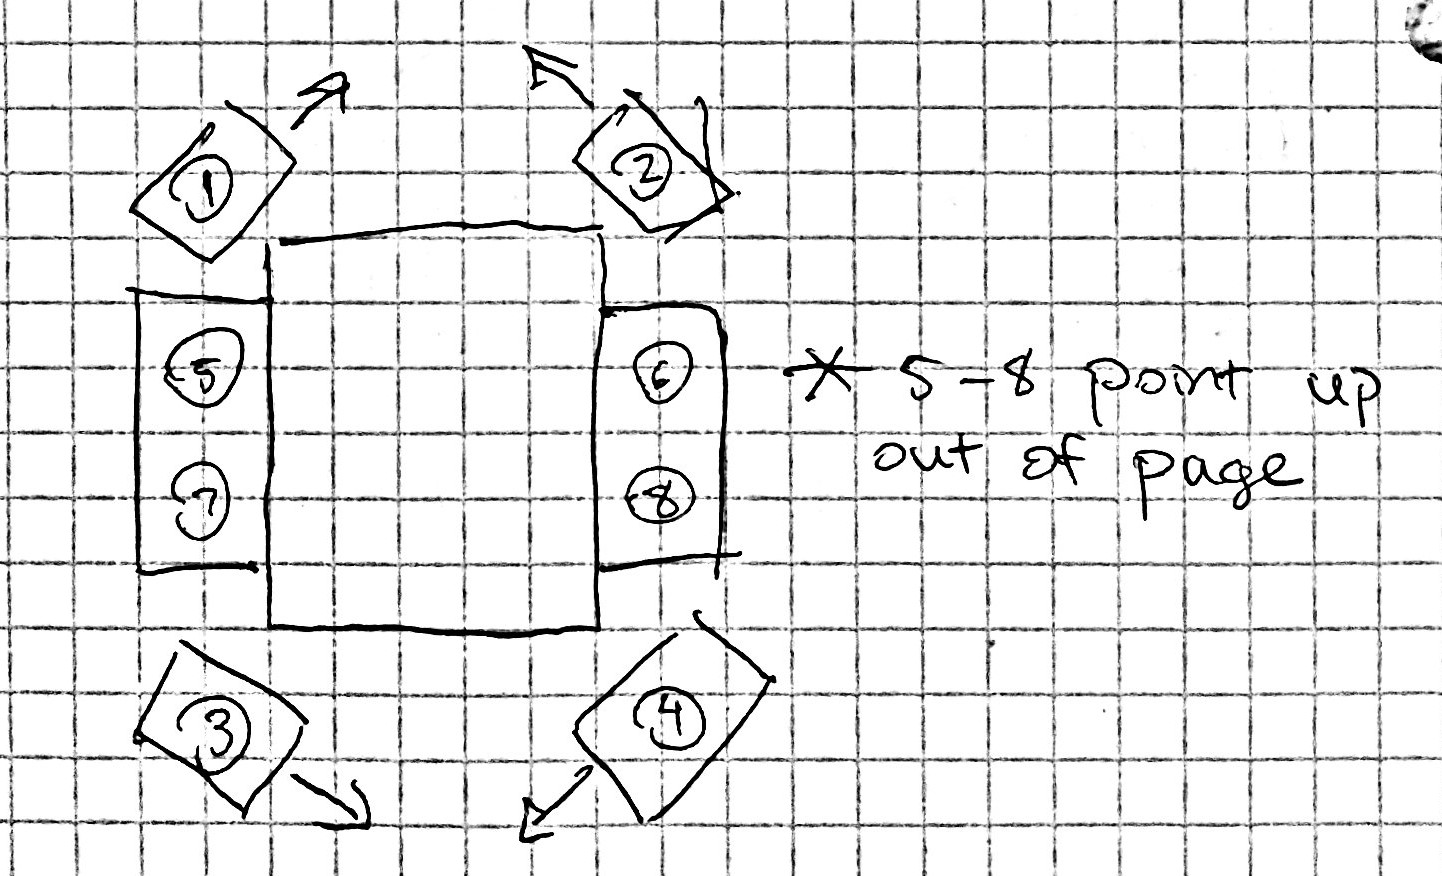 1
2
5
6
* 5-8 point up
7
8
out of page
3
4